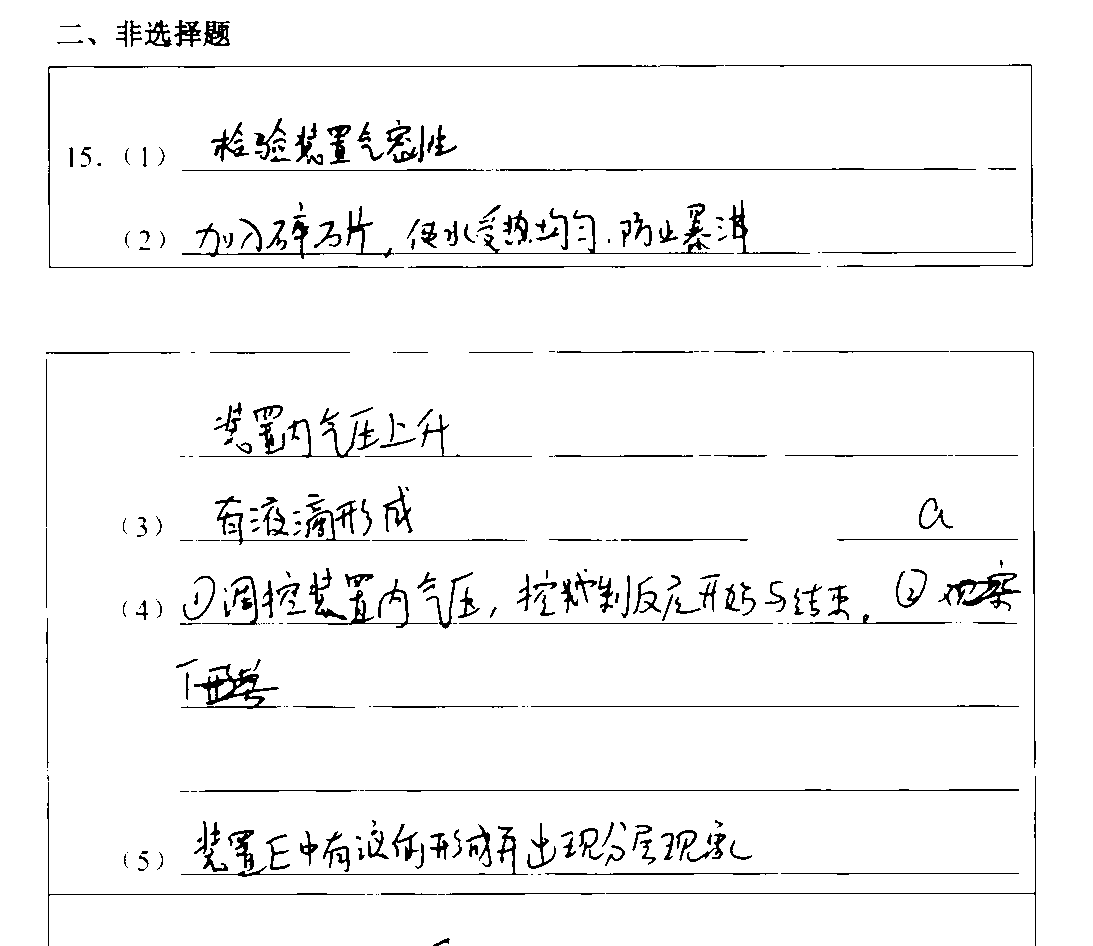 二、非选择题
15.（1） 检验装置气密性
（2） 加入碎石片，使水受热均匀，防止暴沸
装置内气压上升
（3） 有液滴形成 a
（4） ①调控装置内气压，控制反应开始与结束。②
（5） 装置E中有液体形成并出现分层现象